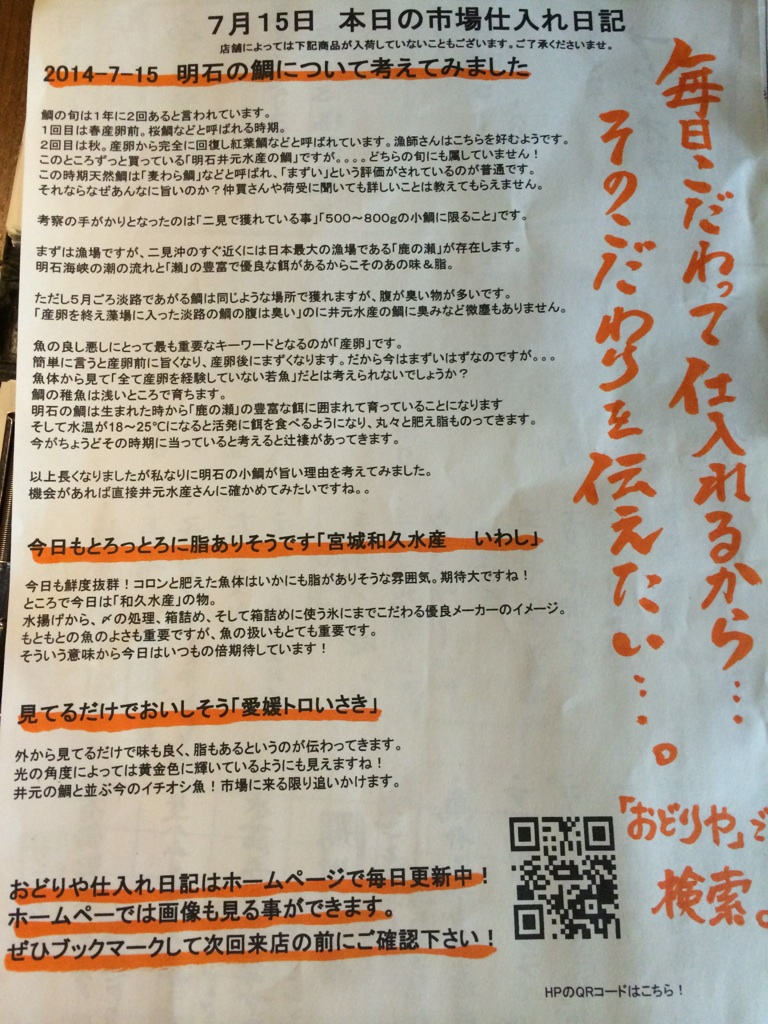 7月15日　本日の市場仕入れ日記
店舗によっては下記商品が入荷していないこともございます。ご了承くださいませ。
2014-7-15　明石の鯛について考えてみました
鯛の旬は1年に2回あると言われています。
1回目は春産卵前。桜鯛などと呼ばれる時期。
2回目は秋。産卵から完全に回復し紅葉鯛などと呼ばれています。漁師さんはこちらを好むようです。
このところずっと買っている「明石井元水産の鯛」ですが。。。。どちらの旬にも属していません！
この時期天然鯛は「麦わら鯛」などと呼ばれ、「まずい」という評価がされているのが普通です。
それならなぜあんなに旨いのか？仲買さんや荷受に聞いても詳しいことは教えてもらえません。
考察の手がかりとなったのは「二見で獲れている事」「500～800gの小鯛に限ること」です。
まずは漁場ですが、二見沖のすぐ近くには日本最大の漁場である「鹿の瀬」が存在します。
明石海峡の潮の流れと「瀬」の豊富で優良な餌があるからこそのあの味＆脂。
ただし5月ごろ淡路であがる鯛は同じような場所で獲れますが、腹が臭い物が多いです。
「産卵を終え藻場に入った淡路の鯛の腹は臭い」のに井元水産の鯛に臭みなど微塵もありません。
魚の良し悪しにとって最も重要なキーワードとなるのが「産卵」です。
簡単に言うと産卵前に旨くなり、産卵後にまずくなります。だから今はまずいはずなのですが。。。
魚体から見て「全て産卵を経験していない若魚」だとは考えられないでしょうか？
鯛の稚魚は浅いところで育ちます。
明石の鯛は生まれた時から「鹿の瀬」の豊富な餌に囲まれて育っていることになります
そして水温が18～25℃になると活発に餌を食べるようになり、丸々と肥え脂ものってきます。
今がちょうどその時期に当っていると考えると辻褄があってきます。
以上長くなりましたが私なりに明石の小鯛が旨い理由を考えてみました。
機会があれば直接井元水産さんに確かめてみたいですね。。
今日もとろっとろに脂ありそうです「宮城和久水産　いわし」
今日も鮮度抜群！コロンと肥えた魚体はいかにも脂がありそうな雰囲気。期待大ですね！
ところで今日は「和久水産」の物。
水揚げから、〆の処理、箱詰め、そして箱詰めに使う氷にまでこだわる優良メーカーのイメージ。
もともとの魚のよさも重要ですが、魚の扱いもとても重要です。
そういう意味から今日はいつもの倍期待しています！
見てるだけでおいしそう「愛媛トロいさき」
外から見てるだけで味も良く、脂もあるというのが伝わってきます。
光の角度によっては黄金色に輝いているようにも見えますね！
井元の鯛と並ぶ今のイチオシ魚！市場に来る限り追いかけます。
おどりや仕入れ日記はホームページで毎日更新中！
ホームペーでは画像も見る事ができます。
ぜひブックマークして次回来店の前にご確認下さい！
毎日こだわって仕入れるから…
そのこだわりを伝えたい…。
「おどりや」で
検索。
HPのQRコードはこちら！